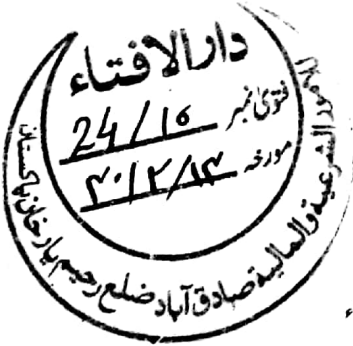 دارالافتاء
فتویٰ نمبر 24/10
مورخہ ۳۰/۲/۱۴
الشرعیة والمالیة صادق آباد ضلع رحیم یار خان پاکستان